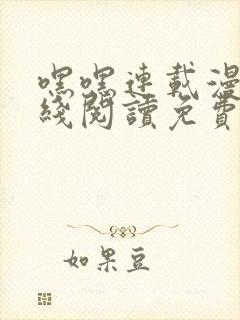 嘿嘿連載漫
綫閱讀免費
如果豆